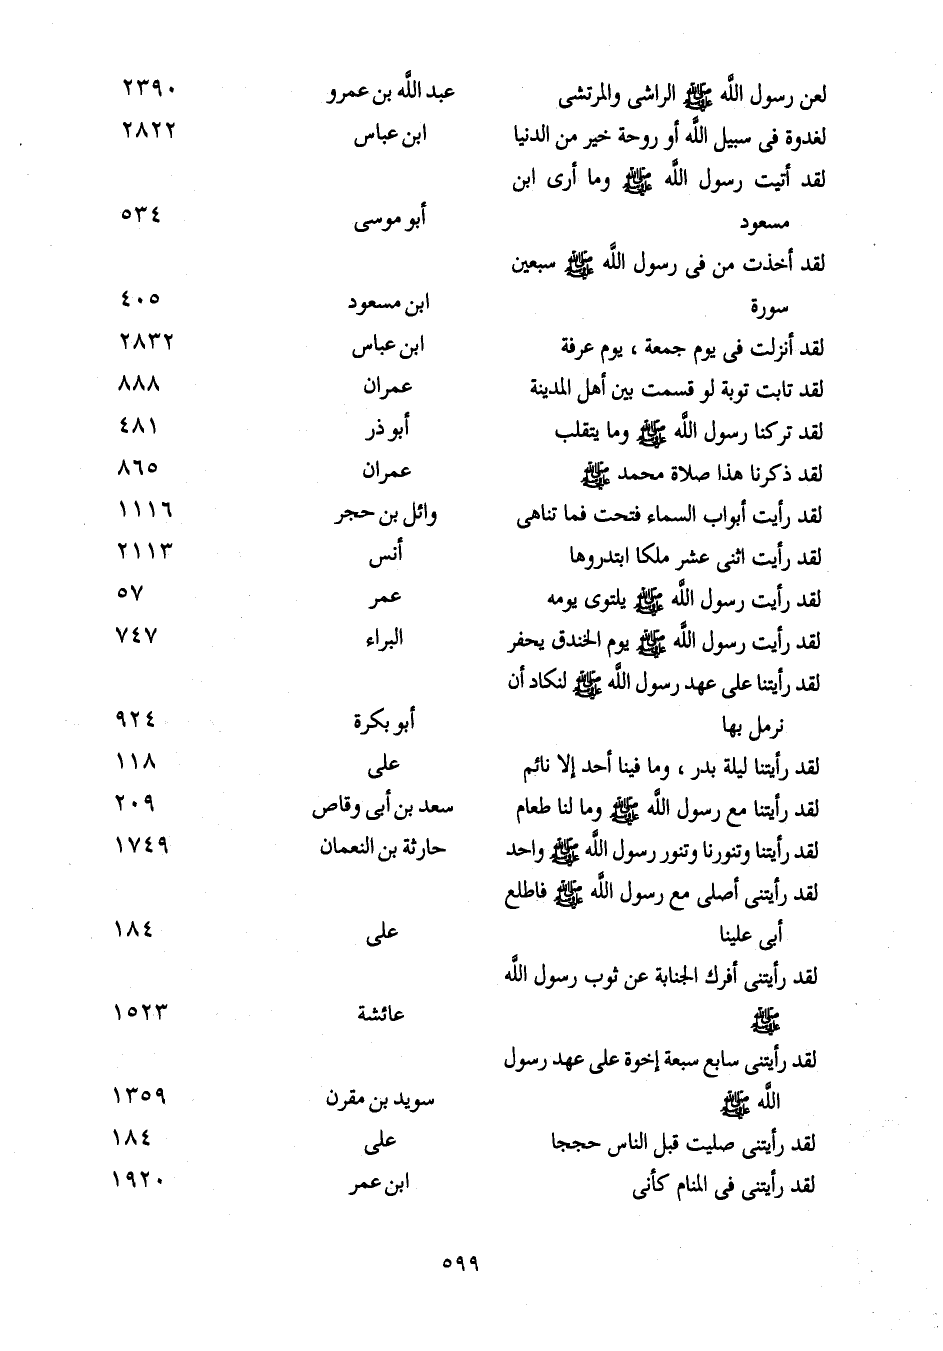 لعن رسول الله ﷺ الراشى والمرتشى عبد الله بن عمرو ٢٣٩٠
لغدوة فى سبيل الله أو روحة خير من الدنيا ابن عباس ٢٨٢٢
لقد أتيت رسول الله ﷺ وما أرى ابن
مسعود أبو موسى ٥٣٤
لقد أخذت من فى رسول الله ﷺ سبعين
سورة ابن مسعود ٤٠٥
لقد أنزلت فى يوم جمعة ، يوم عرفة ابن عباس ٢٨٣٢
لقد تابت توبة لو قسمت بين أهل المدينة عمران ٨٨٨
لقد تركنا رسول الله ﷺ وما يتقلب أبو ذر ٤٨١
لقد ذكرنا هذا صلاة محمد ﷺ عمران ٨٦٥
لقد رأيت أبواب السماء فتحت فما تناهى وائل بن حجر ١١١٦
لقد رأيت اثنى عشر ملكا ابتدروها أنس ٢١١٣
لقد رأيت رسول الله ﷺ يلتوى يومه عمر ٥٧
لقد رأيت رسول الله ﷺ يوم الخندق يحفر البراء ٧٤٧
لقد رأيتنا على عهد رسول الله ﷺ لنكاد أن
نرمل بها أبو بكرة ٩٢٤
لقد رأيتنا ليلة بدر ، وما فينا أحد إلا نائم على ١١٨
لقد رأيتنا مع رسول الله ﷺ وما لنا طعام سعد بن أبى وقاص ٢٠٩
لقد رأيتنا وتنورنا وتنور رسول الله ﷺ واحد حارثة بن النعمان ١٧٤٩
لقد رأيتنى أصلى مع رسول الله ﷺ فاطلع
أبى علينا على ١٨٤
لقد رأيتنى أفرك الجنابة عن ثوب رسول الله
ﷺ عائشة ١٥٢٣
لقد رأيتنى سابع سبعة إخوة على عهد رسول
الله ﷺ سويد بن مقرن ١٣٥٩
لقد رأيتنى صليت قبل الناس حججا على ١٨٤
لقد رأيتنى فى المنام كأنى ابن عمر ١٩٢٠
٥٩٩